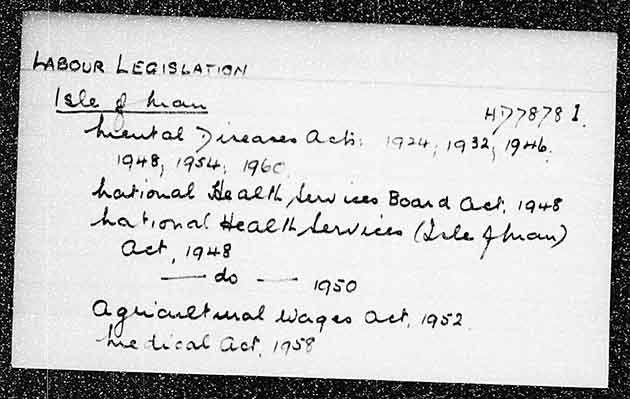 LABOUR LEGISLATION
Isle of Man
HD7878 I.
Mental Diseases Acts: 1924, 1932, 1946.
1948, 1954, 1960
National Health Services Board Act, 1948
National Health Services (Isle of Man)
Act, 1948
— do — 1950
Agricultural Wages Act, 1952
Medical Act, 1958